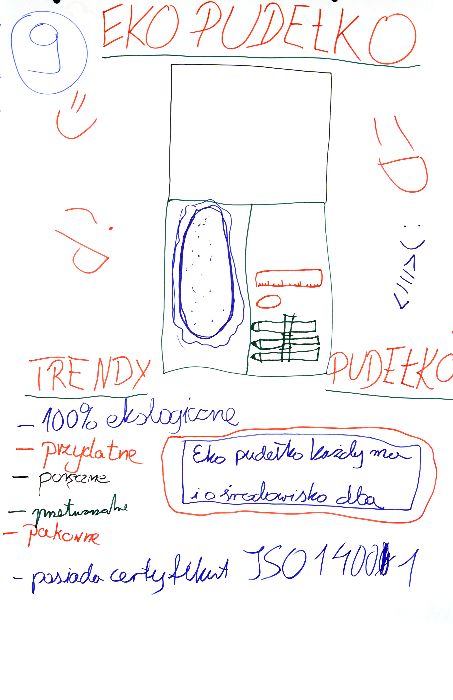 9
EKO PUDEŁKO
TRENDY
PUDEŁKO
- 100% ekologiczne
- przydatne
- pakowne
Eko pudełko każdy ma
i o środowisko dba
- posiada certyfikat ISO 14001